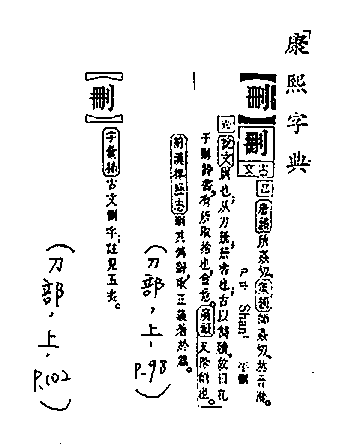 康熙字典
【刪】
刪
古文
唐韻所姦切集韻師姦切𠀤音潸。
Shan¹
說文剟也从刀冊冊書也古以簡牘故曰孔
子刪詩書有所取捨也會意。廣韻又除削也。
前漢律歷志刪其偽辭取正義著於篇。
(刀部,上,P.98)
【刪】
字彙補古文刪字註見五畫。
(刀部,上,P.102)